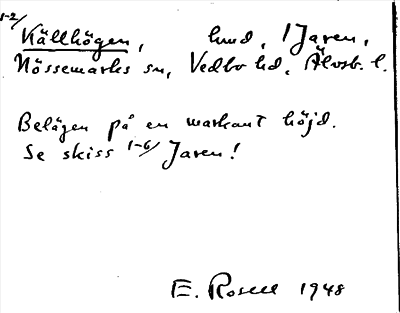 1-2/
Källhögen, hmd, / Jaren,
Nössemarks sn, Vedbo hd, Älvsb. l.
Belägen på en markant höjd.
Se skiss 1-6/ Jaren!
E. Rosell 1948